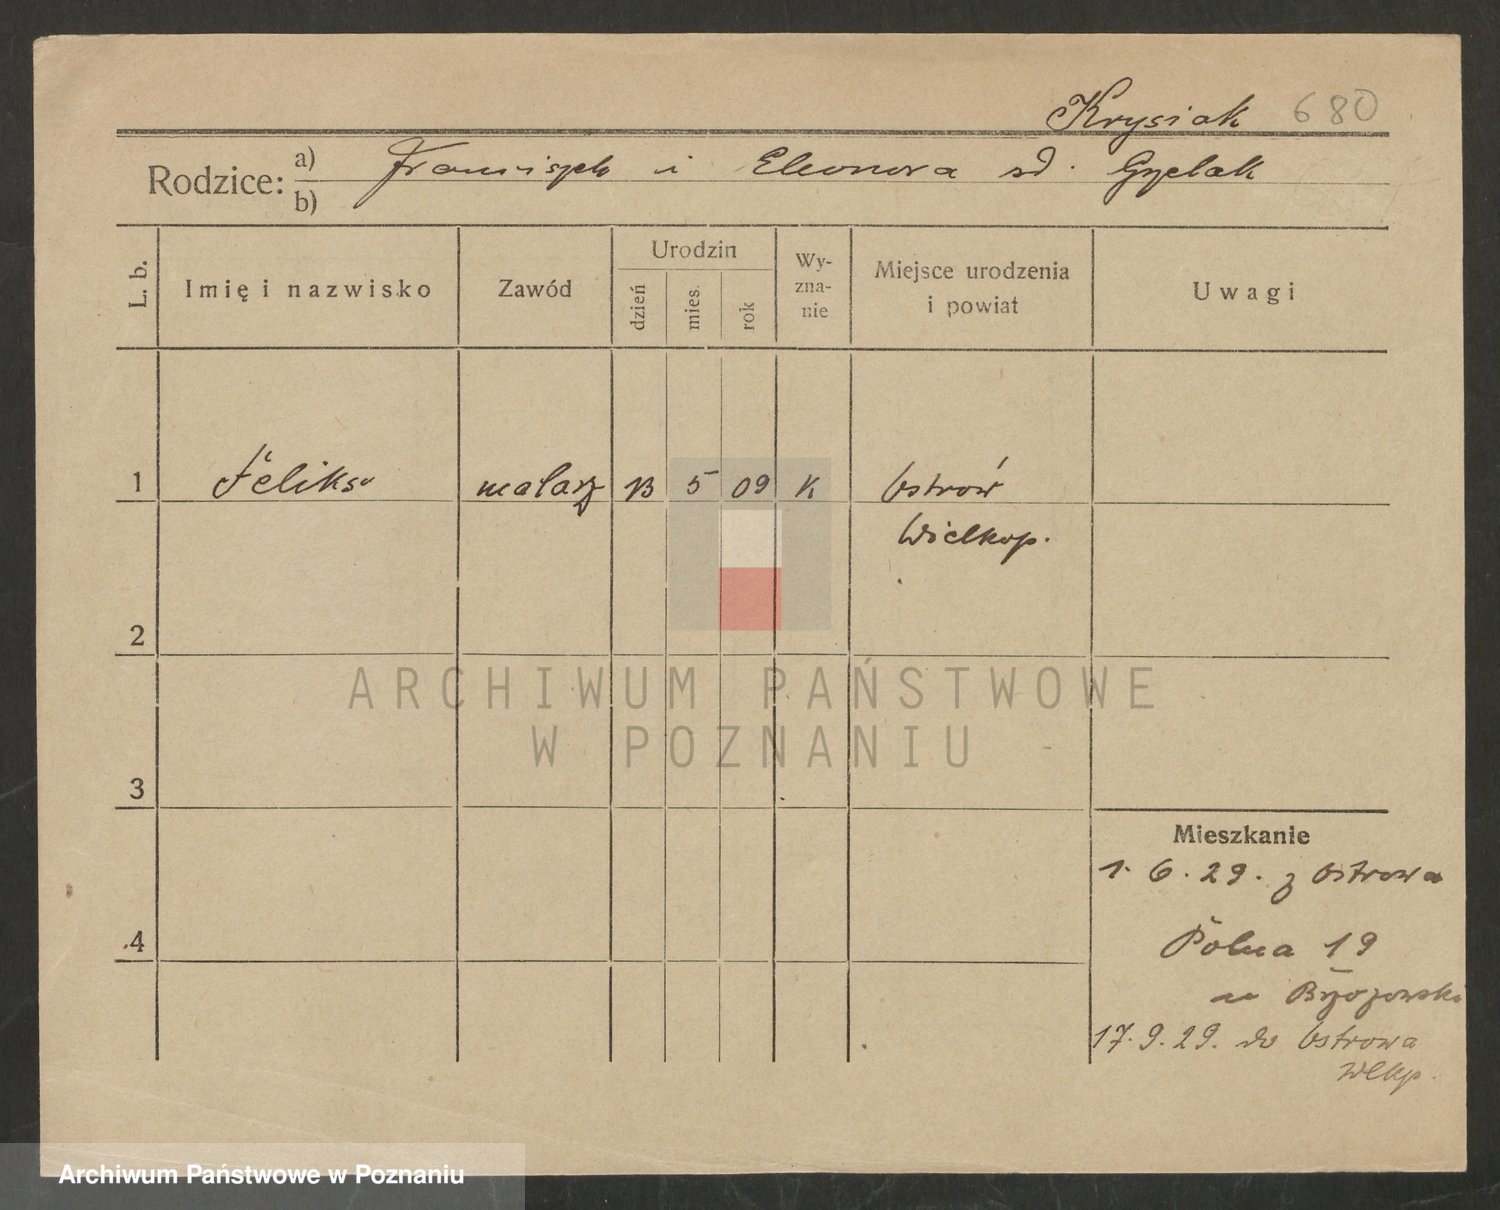 Krysiak 680
Rodzice: a) Franciszek i Eleonora sd. Gzelak
b)
L. b.
Imię i nazwisko
Zawód
Urodzin
dzień
mies.
rok
Wy-
zna-
nie
Miejsce urodzenia
i powiat
Uwagi
1 Feliks malarz 13 5 09 K Ostrów
Wielkop.
2
ARCHIWUM PAŃSTWOWE
W POZNANIU
3
Mieszkanie
1. 6. 29. z Ostrowa
4
Polna 19
u
17. 9. 29. do Ostrowa
Wlkp.
Archiwum Państwowe w Poznaniu